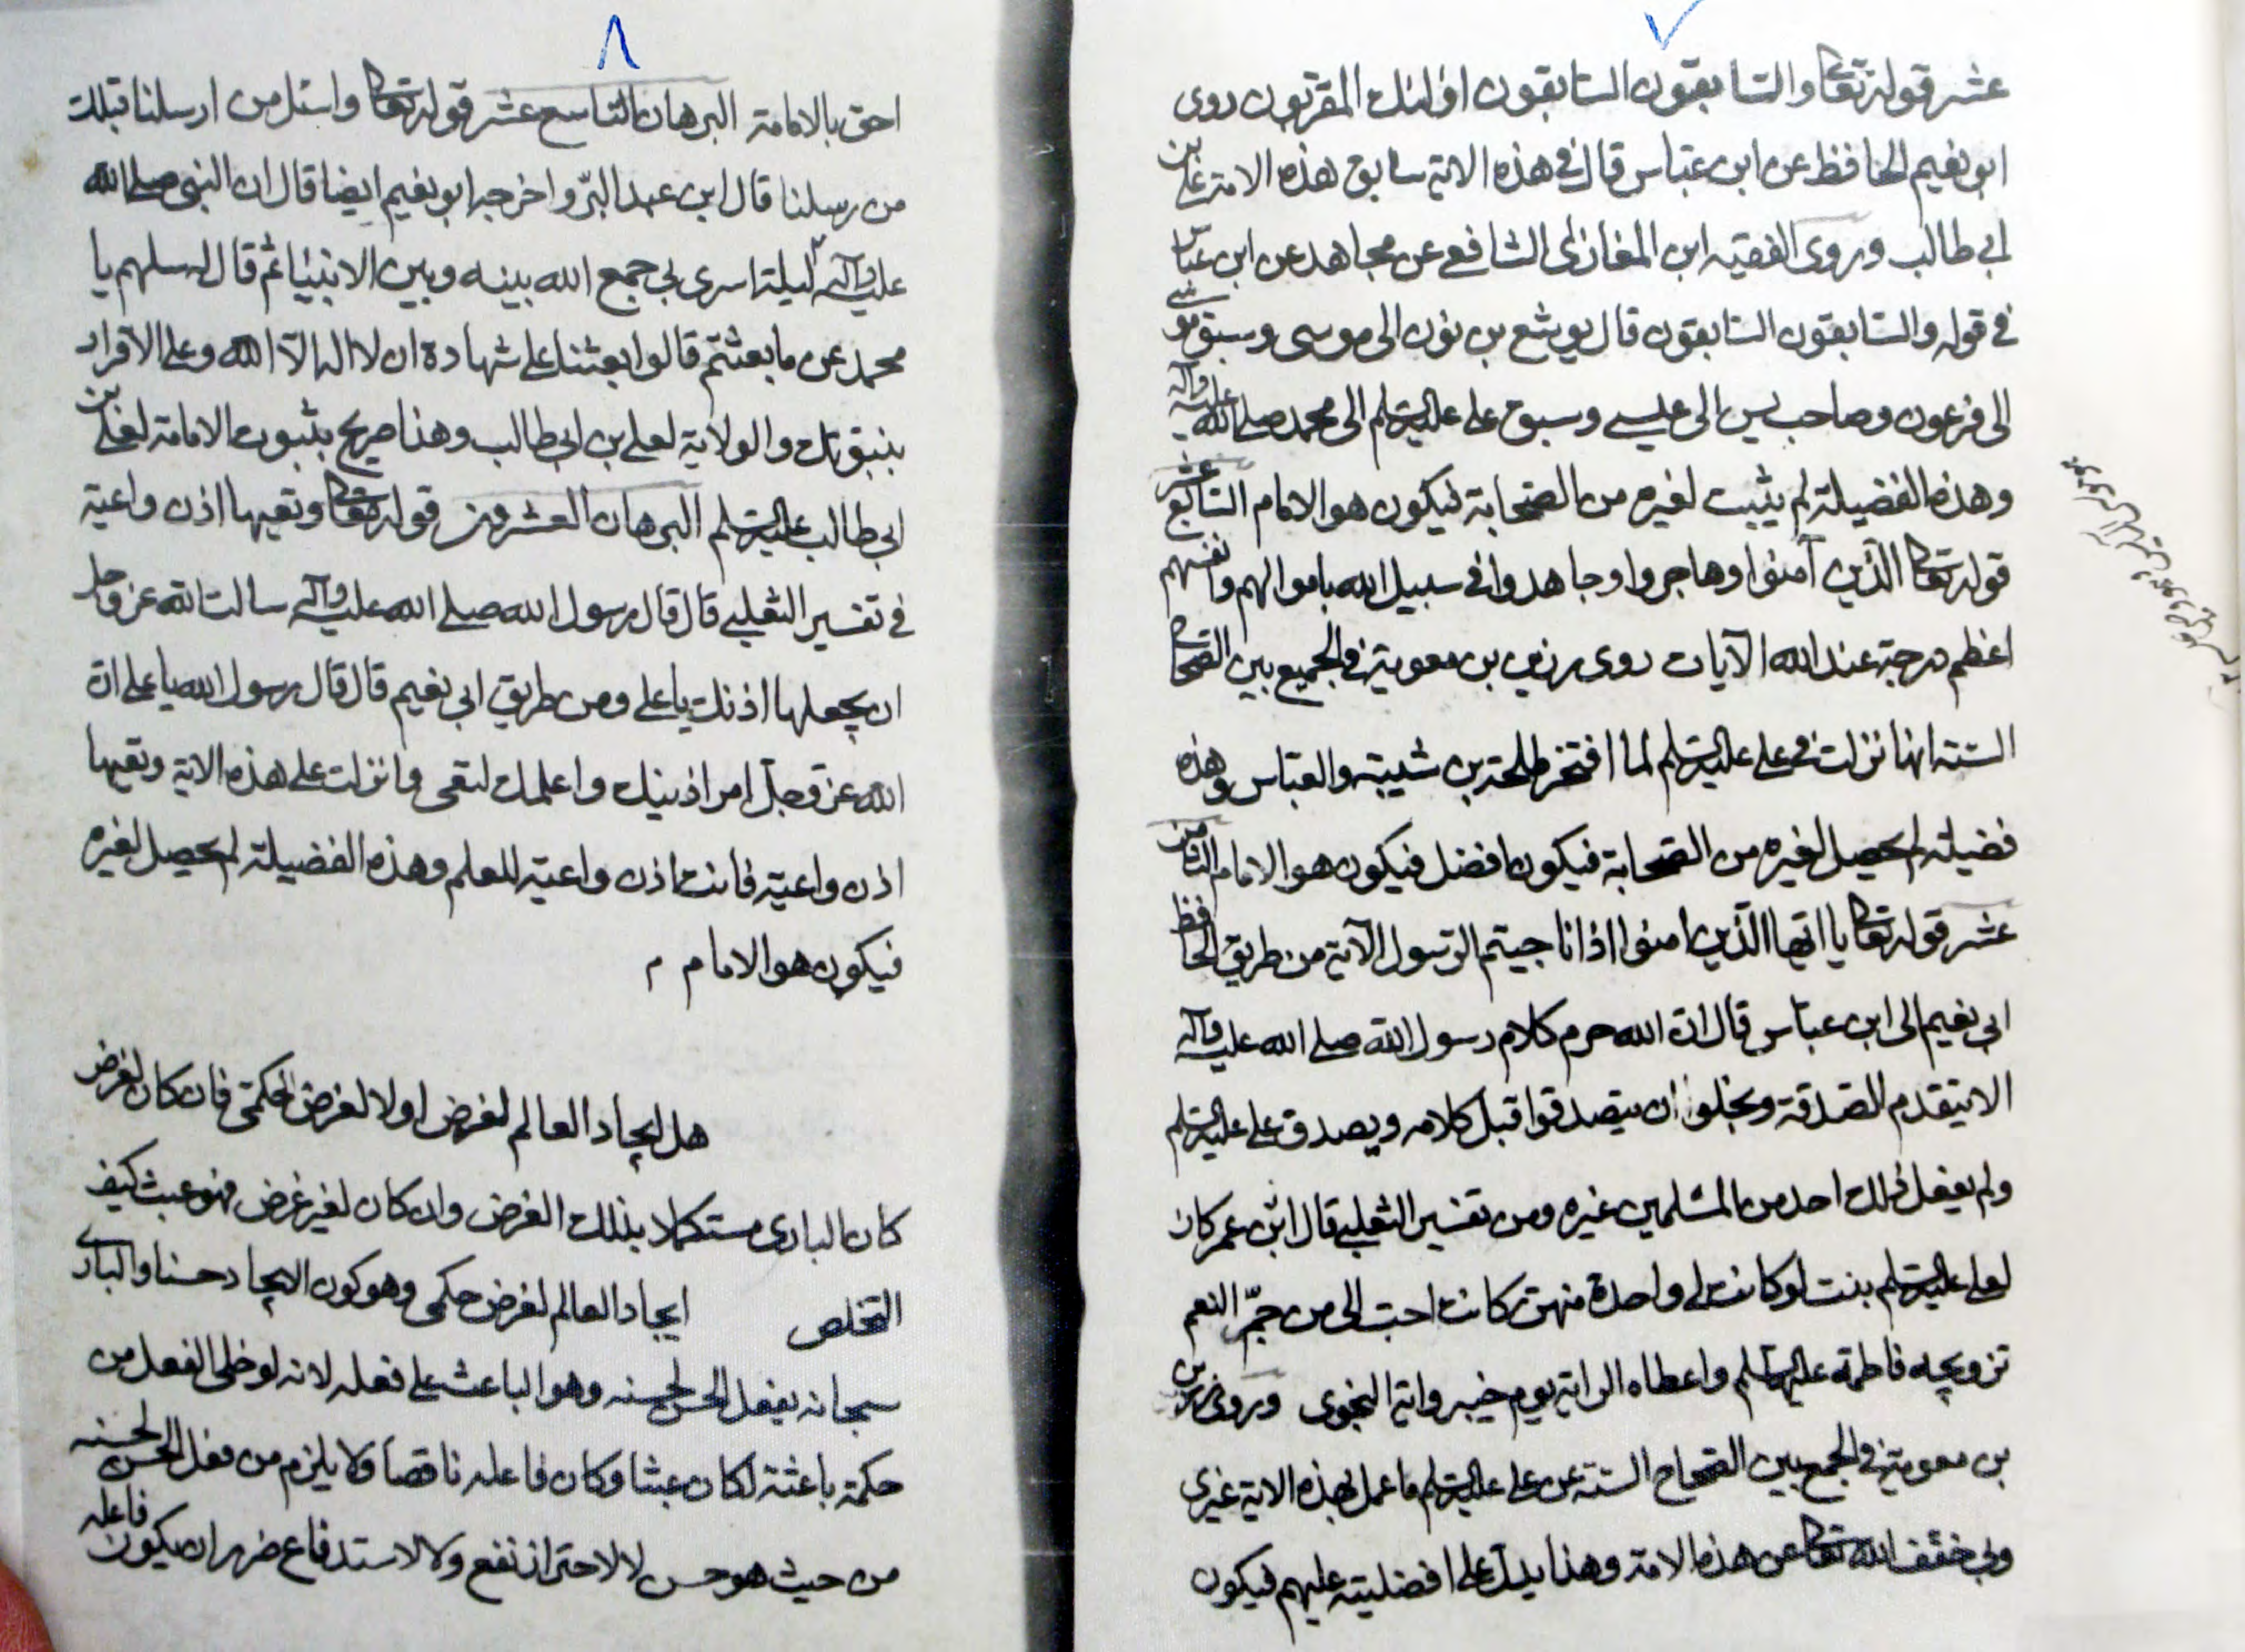 ٧
عشر قوله تعالى والسابقون السابقون اولئك المقربون روى
ابو نعيم الحافظ عن ابن عباس قال في هذه الاية سابق هذه الامة علي بن
ابي طالب وروى الفقيه ابن المغازلي الشافعي عن مجاهد عن ابن عباس
في قوله والسابقون السابقون قال يوشع بن نون الى موسى وسبق موسى
الى فرعون وصاحب يس الى عيسى وسبق علي عليه السلم الى محمد صلى الله عليه وآله
وهذه الفضيلة لم يثبت لغيره من الصحابة فيكون هو الامام السابع عشر
قوله تعالى الذين آمنوا وهاجروا وجاهدوا في سبيل الله باموالهم وانفسهم
اعظم درجة عند الله الآيات روى رزين بن معوية في الجمع بين الصحاح
الستة انها نزلت في علي عليه السلم لما افتخر طلحة بن شيبة والعباس وهذه
فضيلة لم يحصل لغيره من الصحابة فيكون افضل فيكون هو الامام الثامن
عشر قوله تعالى يا ايها الذين امنوا اذا ناجيتم الرسول الآية من طريق الحافظ
ابي نعيم الى ابن عباس قال ان الله حرم كلام رسول الله صلى الله عليه وآله
الا بتقدم الصدقة وبخلوا ان يتصدقوا قبل كلامه ويصدق علي عليه السلم
ولم يفعل ذلك احد من المسلمين غيره ومن تفسير الثعلبي قال ابن عمر كان
لعلي عليه السلم بنت لو كانت لي واحدة منهن كانت احب الي من حمر النعم
تزويجه فاطمة عليها السلم واعطاه الراية يوم خيبر واية النجوى وروى رزين
بن معوية في الجمع بين الصحاح الستة عن علي عليه السلم ما عمل بهذه الاية غيري
وبي خفف الله تعالى عن هذه الامة وهذا يدل على افضليته عليهم فيكون
٨
احق بالامامة البرهان التاسع عشر قوله تعالى واسئل من ارسلنا قبلك
من رسلنا قال ابن عبد البر واخرجه ابو نعيم ايضا قال ان النبي صلى الله
عليه وآله ليلة اسري بي جمع الله بينه وبين الانبياء ثم قال له سلهم يا
محمد عن ما بعثتم قالوا بعثنا على شهادة ان لا اله الا الله وعلى الاقرار
بنبوتك والولاية لعلي بن ابي طالب وهذا صريح بثبوت الامامة لعلي بن
ابي طالب عليه السلم البرهان العشرون قوله تعالى وتعيها اذن واعية
في تفسير الثعلبي قال قال رسول الله صلى الله عليه وآله سالت الله عز وجل
ان يجعلها اذنك يا علي ومن طريق ابي نعيم قال قال رسول الله يا علي ان
الله عز وجل امر ادنيك واعلمك لتعى وانزلت علي هذه الاية وتعيها
اذن واعية فانت اذن واعية للعلم وهذه الفضيلة لم يحصل لغيره
فيكون هو الامام م
هل ايجاد العالم لغرض اولا لغرض الحكمى فان كان لغرض
كان البارى مستكملا بذلك الغرض وان كان لغير غرض فهو عبث كيف
التخلص ايجاد العالم لغرض حكمى وهو كون الايجاد حسنا والبارى
سبحانه يفعل الحسن لحسنه وهو الباعث على فعله لانه لو خلى الفعل من
حكمة باعثة لكان عبثا وكان فاعله ناقصا ولا يلزم من فعل الحسن لحسنه
من حيث هو حسن لا لاحتراز نفع ولا لاستدفاع ضرر ان يكون فاعله